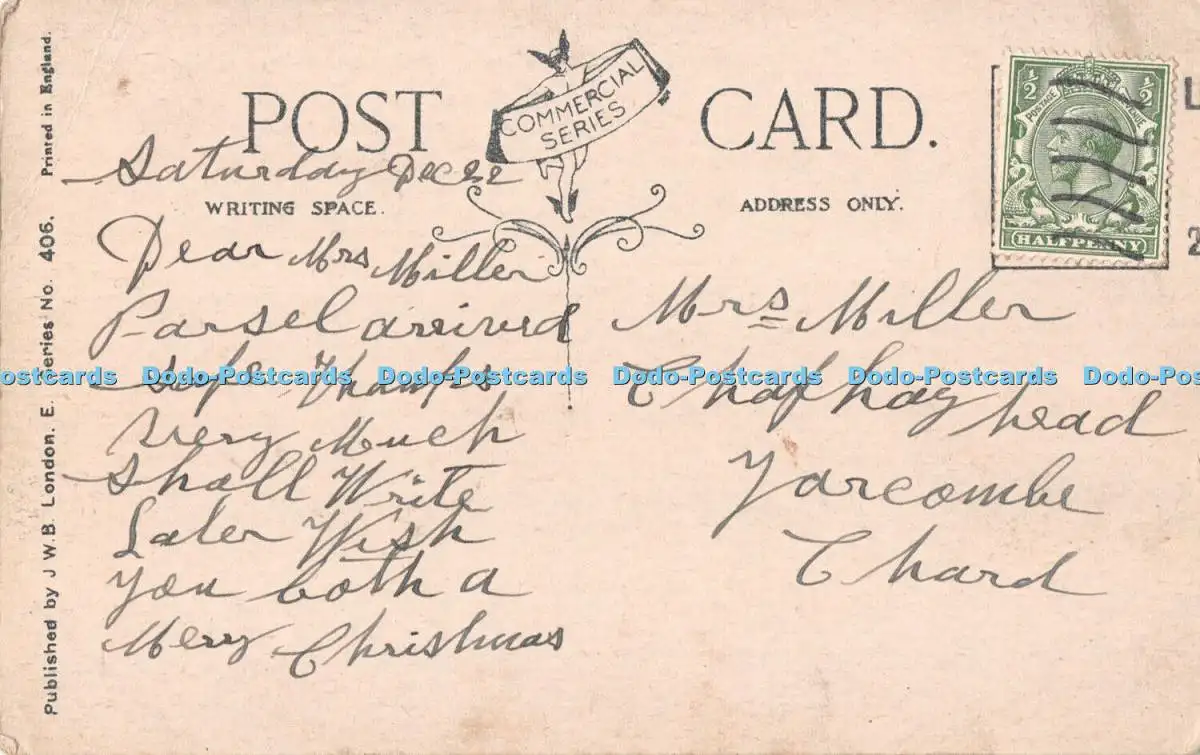 POST CARD.
COMMERCIAL
SERIES
Saturday Dec 22
WRITING SPACE.
ADDRESS ONLY.
Dear Mrs Miller
Parsel arrived
Safe Thanks
Very Much
Shall Write
Later Wish
You both a
Merry Christmas
Mrs Miller
Chafhay head
Yarcombe
Chard
½ ½
POSTAGE REVENUE
HALFPENNY
L
2
Printed in England.
Published by J.W.B. London. E. Series No. 406.
Dodo-Postcards Dodo-Postcards Dodo-Postcards Dodo-Postcards Dodo-Postcards Dodo-Postcards